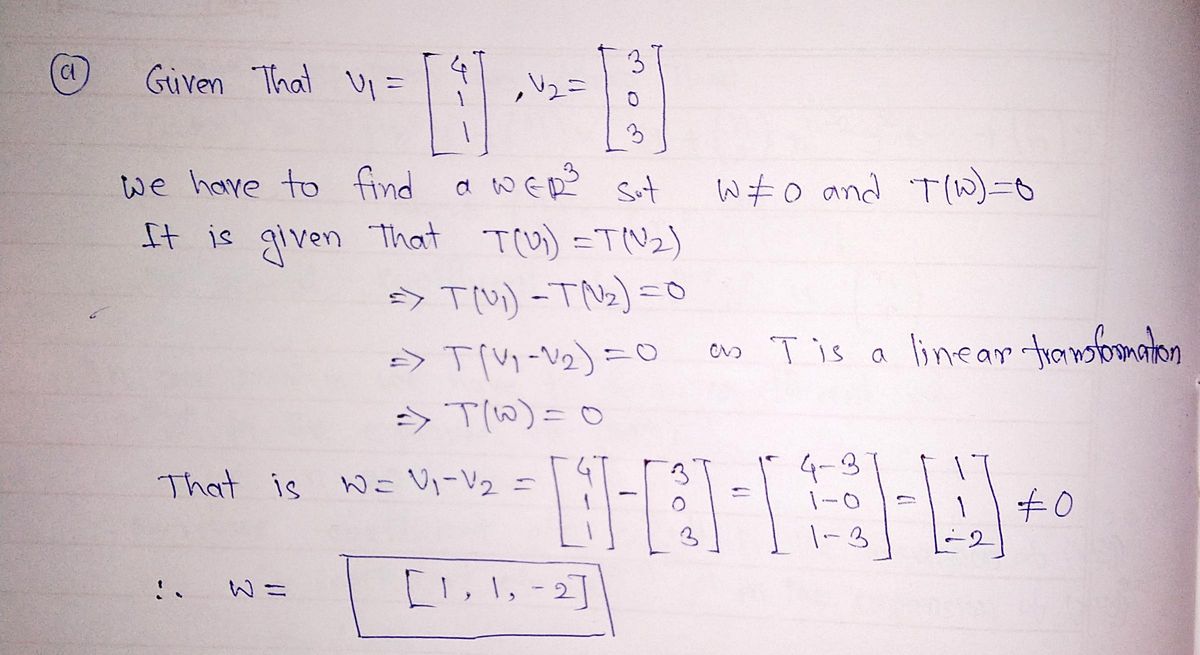 (a) Given That v1 = [4 1 1], v2 = [3 0 3]
we have to find a w ∈ R^3 s.t w ≠ 0 and T(w)=0
It is given That T(v1) = T(v2)
=> T(v1) - T(v2) = 0
=> T(v1-v2) = 0 as T is a linear transformation
=> T(w) = 0
That is w = v1-v2 = [4 1 1] - [3 0 3] = [4-3 1-0 1-3] = [1 1 -2] ≠ 0
∴ w = [1, 1, -2]